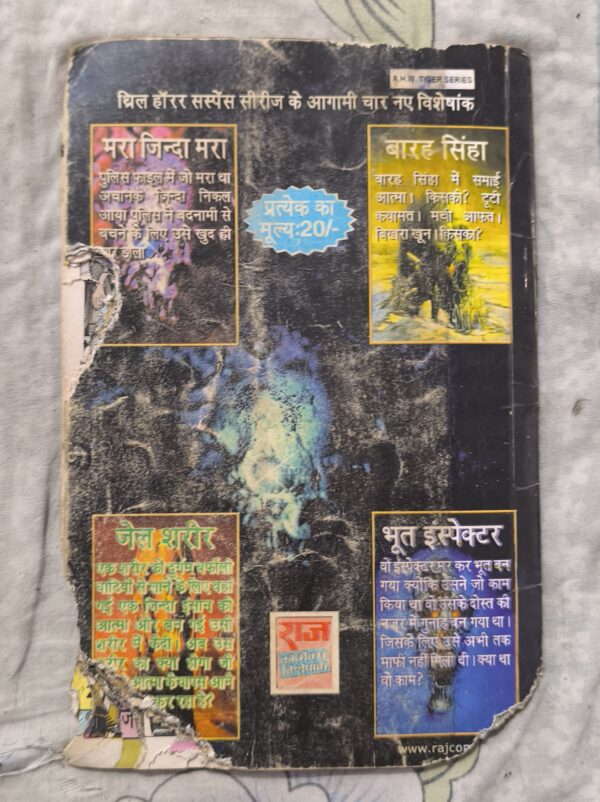 A.H.W. TIGER SERIES
थ्रिल हॉरर सस्पेंस सीरीज के आगामी चार नए विशेषांक
मरा जिन्दा मरा
पुलिस फाइल में जो मरा था
अचानक ज़िन्दा निकल
आया पुलिस ने बदनामी से
बचने के लिए उसे खुद ही
डाला
प्रत्येक का
मूल्य:20/-
बारह सिंहा
बारह सिंहा में समाई
आत्मा। किसकी? टूटी
कयामत। मची आफत।
बिखरा खून। किसका?
जेल शरीर
एक शरीर को दुर्गम बर्फीली
वादियों से लाने के लिए वहां
गई एक जिन्दा इंसान की
आत्मा और बन गई उसी
शरीर में कैदी। अब उस
शरीर का क्या होगा जो
आत्मा के वापस आने
कर रहा है?
राज
कॉमिक्स
विशेषांक
भूत इंस्पेक्टर
वो इंस्पेक्टर मर कर भूत बन
गया क्योंकि उसने जो काम
किया था वो उसके दोस्त की
नजर में गुनाह बन गया था।
जिसके लिए उसे अभी तक
माफी नहीं मिली थी। क्या था
वो काम?
www.rajco